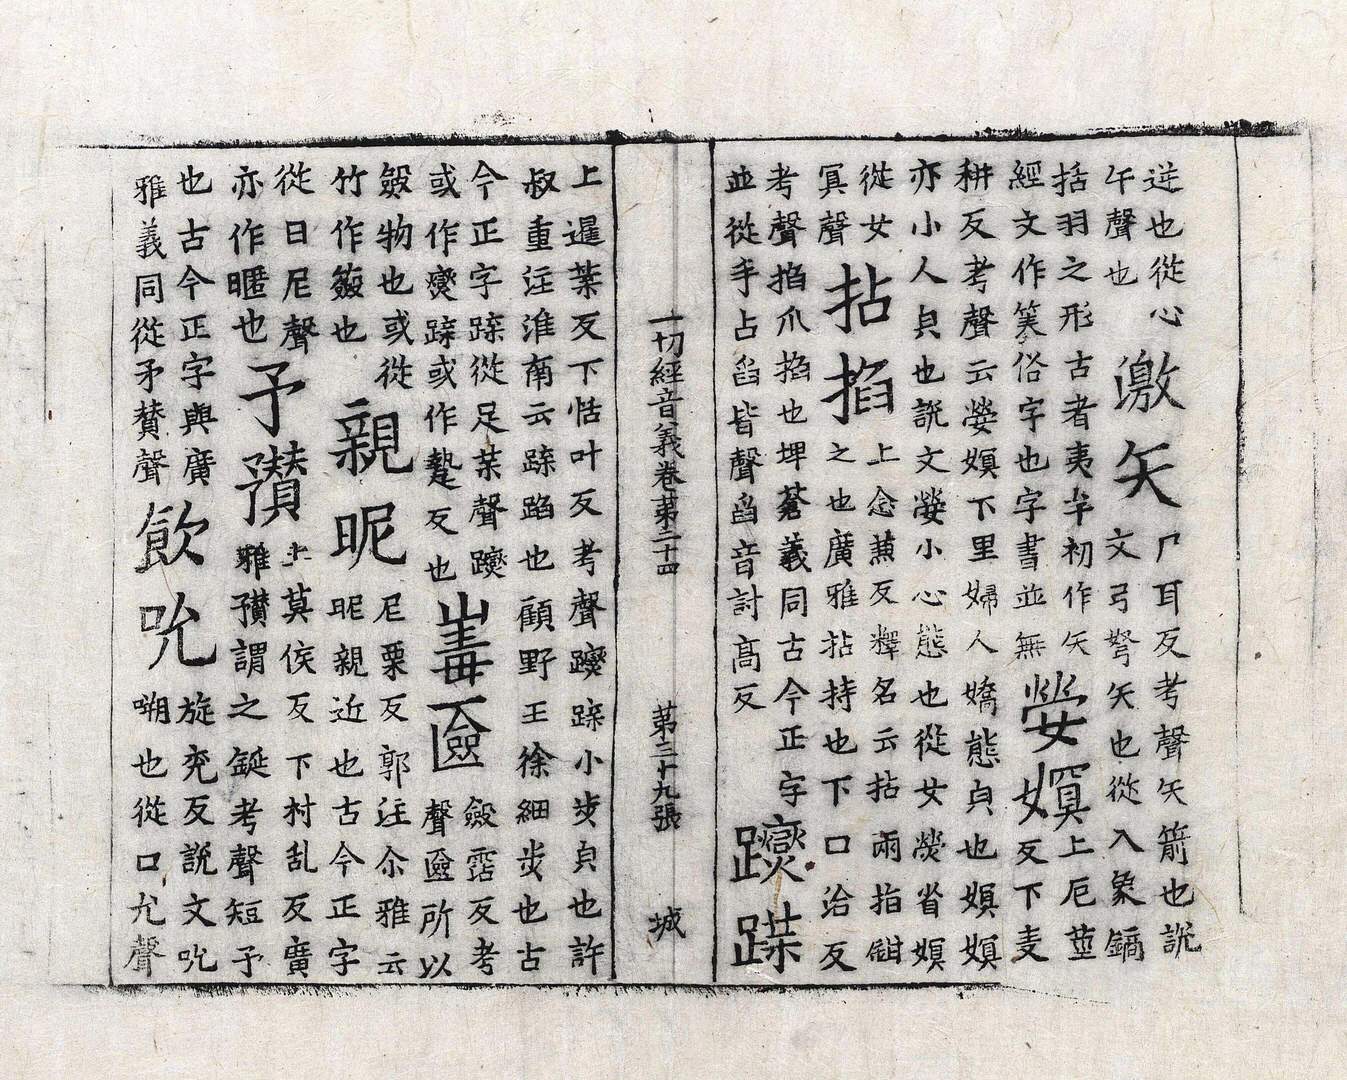 逆也從心
午聲也
激矢
尸耳反考聲矢箭也說
文弓弩矢也從入象鏑
括羽之形古者夷牟初作矢
經文作筭俗字也字書並無
嫈嫇
上厄莖
反下麦
耕反考聲云嫈嫇下里婦人嬌態皃也嫇嫇
亦小人皃也說文嫈小心態也從女熒省嫇
從女
冥聲
拈掐
上念蒹反釋名云拈兩指鉗
之也廣雅拈持也下口洽反
考聲掐爪掐也埤蒼義同古今正字
並從手占臽皆聲臽音討高反
躞蹀
一切經音義卷第三十四 第三十九張 城
上暹葉反下恬叶反考聲躞蹀小步皃也許
叔重注淮南云蹀蹈也顧野王徐細步也古
今正字蹀從足枼聲躞
或作㸉蹀或作反也
匳
斂霑反考
聲匳所以
斂物也或從
竹作籢也
親昵
尼栗反郭注尒雅云
昵親近也古今正字
從日尼聲
亦作暱也
矛䂎
上莫侯反下村乱反廣
雅䂎謂之鋋考聲短矛
也古今正字與廣
雅義同從矛贊聲
飲吮
旋兖反說文吮
嗍也從口允聲